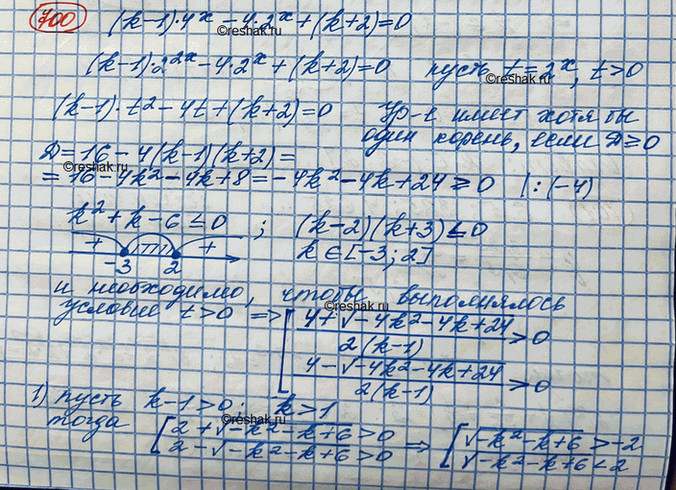 700
(k-1)·4^x - 4·2^x + (k+2)=0
(k-1)·2^{2x} - 4·2^x + (k+2)=0 пусть t=2^x, t>0
(k-1)·t² - 4t + (k+2)=0 Ур-е имеет хотя бы
один корень, если D≥0
D=16-4(k-1)(k+2)=
=16-4k²-4k+8=-4k²-4k+24≥0 |:(-4)
k²+k-6≤0 ; (k-2)(k+3)≤0
+ + k∈[-3;2]
-3 2
и необходимо, чтобы выполнялось
условие t>0 => [ (4+√(-4k²-4k+24))/(2(k-1)) >0
(4-√(-4k²-4k+24))/(2(k-1)) >0
1) пусть k-1>0; k>1
тогда [ 2+√(-k²-k+6)>0 => [ √(-k²-k+6)>-2
2-√(-k²-k+6)>0 √(-k²-k+6)<2
©reshak.ru
©reshak.ru
©reshak.ru
©reshak.ru
©reshak.ru